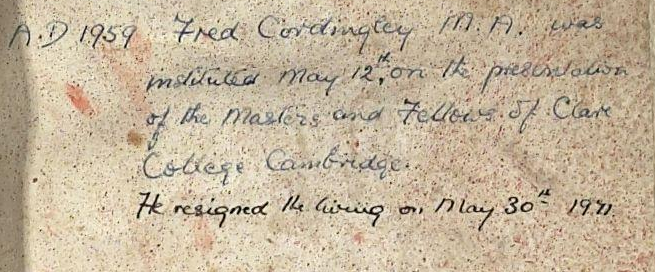 A.D 1959 Fred Cordingley M.A. was
instituted May 12th, on the presentation
of the Masters and Fellows of Clare
College Cambridge.
He resigned the living on May 30th 1971